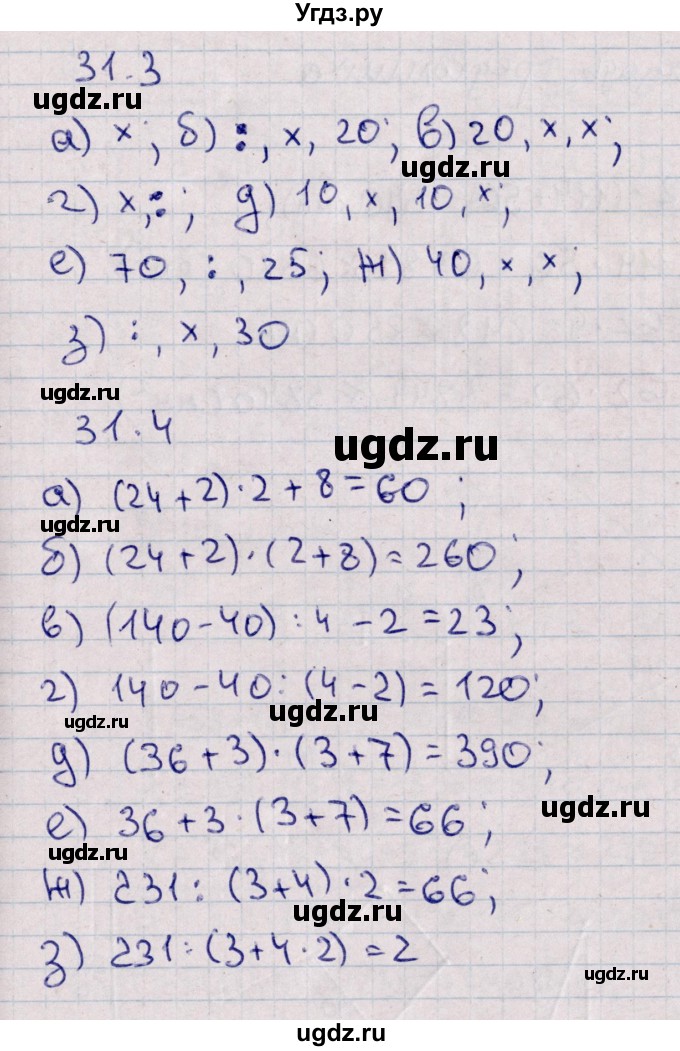 Угдз.ру
31.3
ugdz.ru
а) x; б) :, x, 20; в) 20, x, x;
ugdz.ru
г) x, :; д) 10, x, 10, x;
е) 70, :, 25; ж) 40, x, x;
з) :, x, 30
ugdz.ru
31.4
ugdz.ru
а) (24+2)·2+8=60;
ugdz.ru
б) (24+2)·(2+8)=260;
в) (140-40):4-2=23;
г) 140-40:(4-2)=120;
ugdz.ru
ugdz.ru
д) (36+3)·(3+7)=390;
ugdz.ru
е) 36+3·(3+7)=66;
ugdz.ru
ж) 231:(3+4)·2=66;
ugdz.ru
з) 231:(3+4·2)=2
ugdz.ru
ugdz.ru